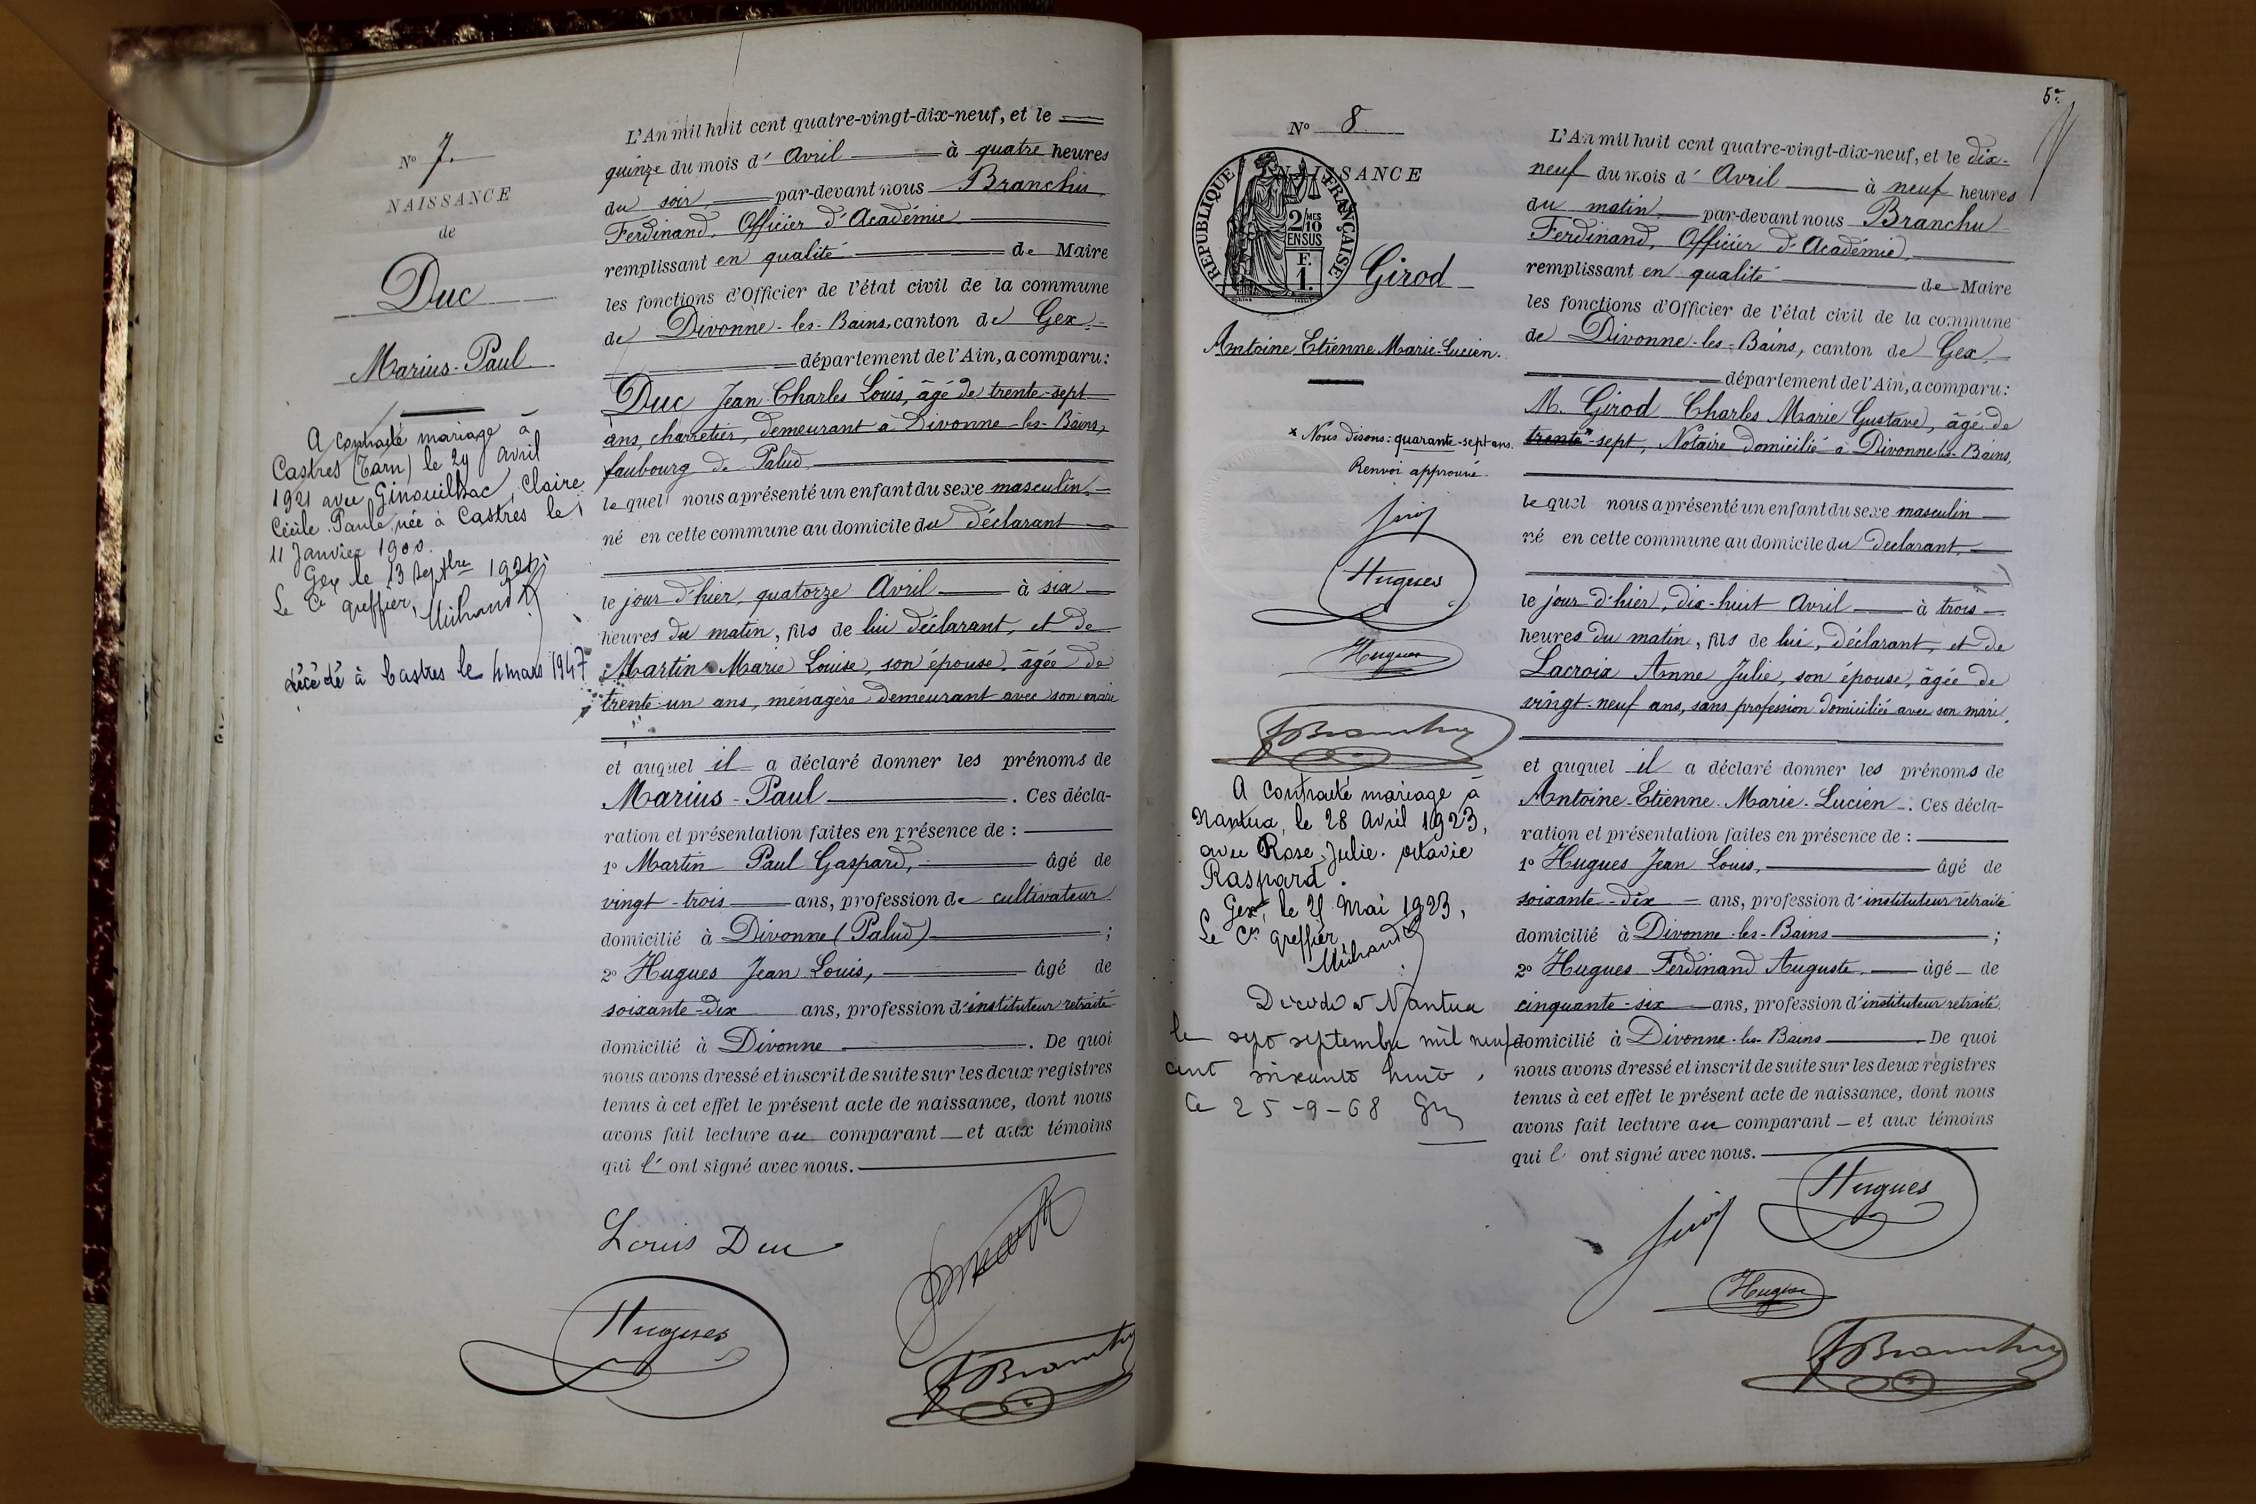 N° 7.
NAISSANCE
de
Duc
Marius-Paul
A contracté mariage à
Castres (Tarn) le 29 avril
1921 avec Ginouilhac, Claire
Cécile Paule, née à Castres le
11 Janvier 1900.
Gex le 13 Septbre 1921
Le Cis greffier,
décédé à Castres le 4 mars 1947
L'An mil huit cent quatre-vingt-dix-neuf, et le
quinze du mois d' Avril à quatre heures
du soir, par-devant nous Branchu
Ferdinand, Officier d'Académie
remplissant en qualité de Maire
les fonctions d'Officier de l'état civil de la commune
de Divonne-les-Bains, canton de Gex
département de l'Ain, a comparu:
Duc Jean Charles Louis, âgé de trente-sept
ans, charretier, demeurant à Divonne-les-Bains,
faubourg de Palud
lequel nous a présenté un enfant du sexe masculin,
né en cette commune au domicile du déclarant
le jour d'hier, quatorze Avril à six
heures du matin, fils de lui déclarant, et de
Martin Marie Louise, son épouse, âgée de
trente-un ans, ménagère demeurant avec son mari
et auquel il a déclaré donner les prénoms de
Marius-Paul. Ces décla-
ration et présentation faites en présence de :
1° Martin Paul Gaspard, âgé de
vingt-trois ans, profession de cultivateur
domicilié à Divonne (Palud) ;
2° Hugues Jean Louis, âgé de
soixante-dix ans, profession d'instituteur retraité
domicilié à Divonne. De quoi
nous avons dressé et inscrit de suite sur les deux registres
tenus à cet effet le présent acte de naissance, dont nous
avons fait lecture au comparant et aux témoins
qui l'ont signé avec nous.
Louis Duc
Hugues
FBranchu
5e
N° 8
NAISSANCE
RÉPUBLIQUE FRANÇAISE
2/10 MES
EN SUS
F.
1.
Girod
Antoine Etienne Marie-Lucien.
x Nous disons: quarante-sept ans.
Renvoi approuvé.
Girod
Hugues
Hugues
FBranchu
A contracté mariage à
Nantua, le 28 avril 1923,
avec Rose Julie octavie
Raspard.
Gex, le 21 Mai 1923,
Le Cis greffier,
Décédé à Nantua
le sept septembre mil neuf
cent soixante huit,
le 25-9-68
L'An mil huit cent quatre-vingt-dix-neuf, et le dix-
neuf du mois d' Avril à neuf heures
du matin, par-devant nous Branchu
Ferdinand, Officier d'Académie
remplissant en qualité de Maire
les fonctions d'Officier de l'état civil de la commune
de Divonne-les-Bains, canton de Gex
département de l'Ain, a comparu:
M. Girod Charles Marie Gustave, âgé de
trente x-sept, Notaire domicilié à Divonne-les-Bains,
lequel nous a présenté un enfant du sexe masculin
né en cette commune au domicile du déclarant,
le jour d'hier, dix-huit Avril à trois
heures du matin, fils de lui, déclarant, et de
Lacroix Anne Julie, son épouse, âgée de
vingt-neuf ans, sans profession domiciliée avec son mari.
et auquel il a déclaré donner les prénoms de
Antoine-Etienne-Marie-Lucien. Ces décla-
ration et présentation faites en présence de :
1° Hugues Jean Louis, âgé de
soixante-dix ans, profession d'instituteur retraité
domicilié à Divonne-les-Bains ;
2° Hugues Ferdinand Auguste, âgé de
cinquante-six ans, profession d'instituteur retraité
domicilié à Divonne-les-Bains. De quoi
nous avons dressé et inscrit de suite sur les deux registres
tenus à cet effet le présent acte de naissance, dont nous
avons fait lecture au comparant et aux témoins
qui l' ont signé avec nous.
Girod
Hugues
Hugues
FBranchu